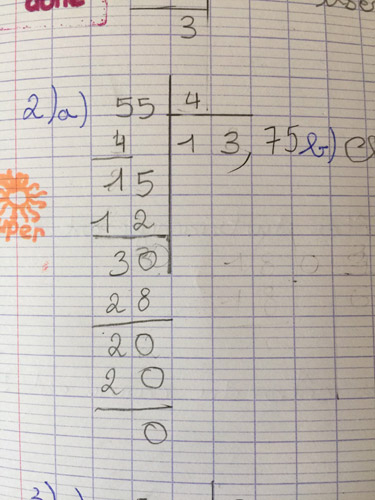 done
3
2)a) 55 4
4 13,75 b)
15
12
30
28
20
20
0